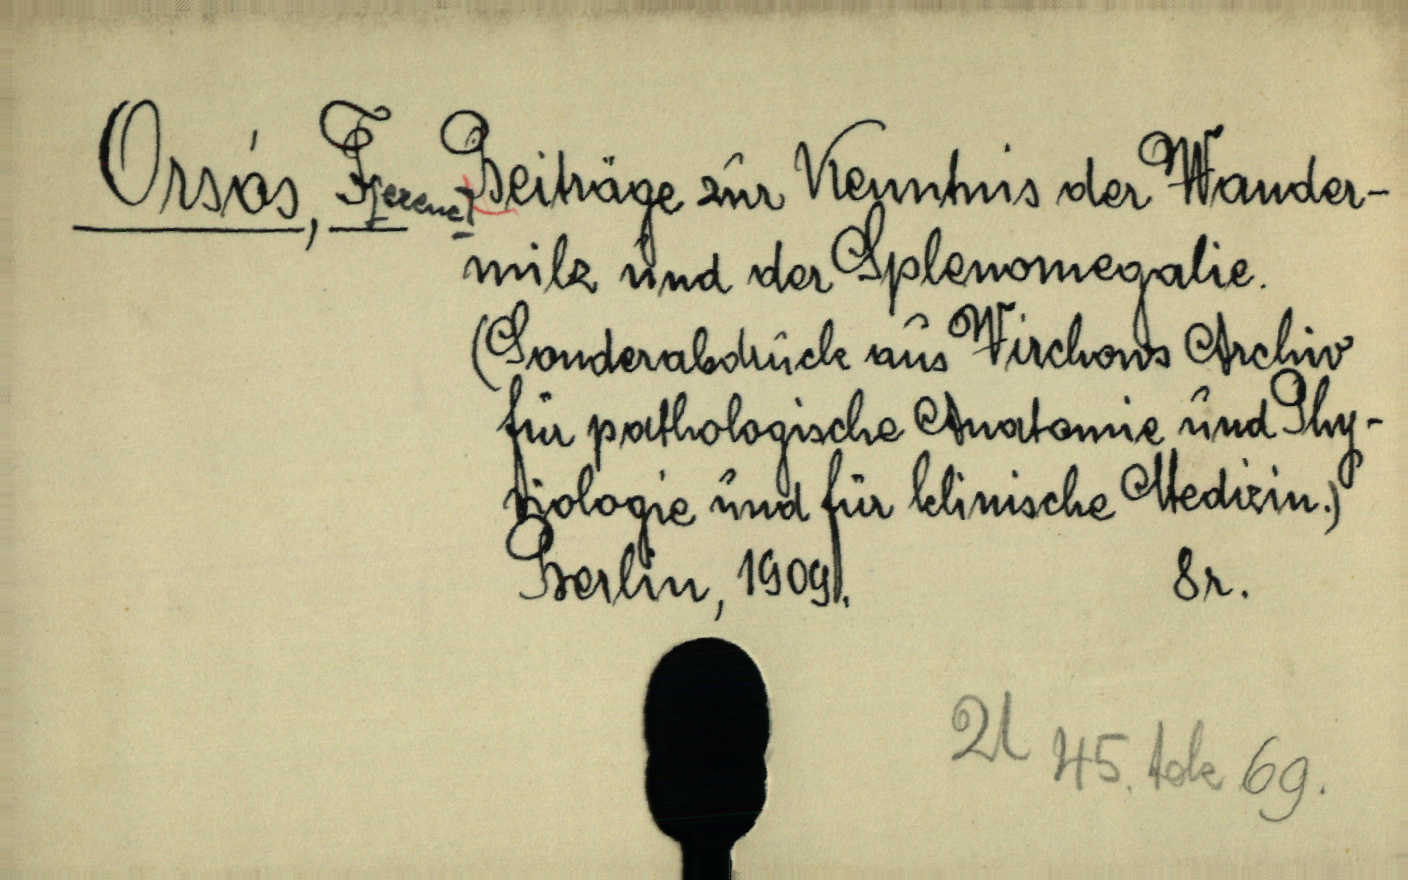 Orsós, F[erenc] Beiträge zur Kenntnis der Wander-
milz und der Splenomegalie.
(Sonderabdruck aus Virchows Archiv
für pathologische Anatomie und Phy-
siologie und für klinische Medizin.)
Berlin, 1909. 8r.
45. tok 69.